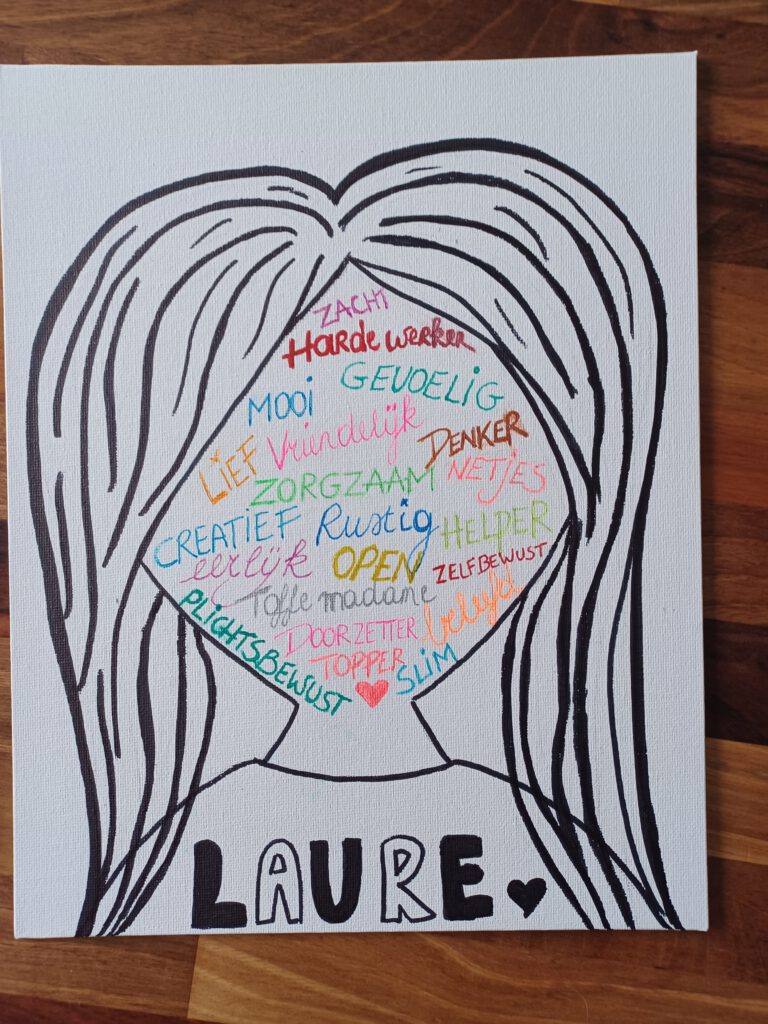 ZACHT
Harde werker
GEVOELIG
MOOI
Vriendelijk
DENKER
LIEF
NETJES
ZORGZAAM
CREATIEF Rustig HELPER
eerlijk OPEN ZELFBEWUST
Toffe madame
PLIGHTSBEWUST
DOORZETTER beleefd
TOPPER SLIM
LAURE